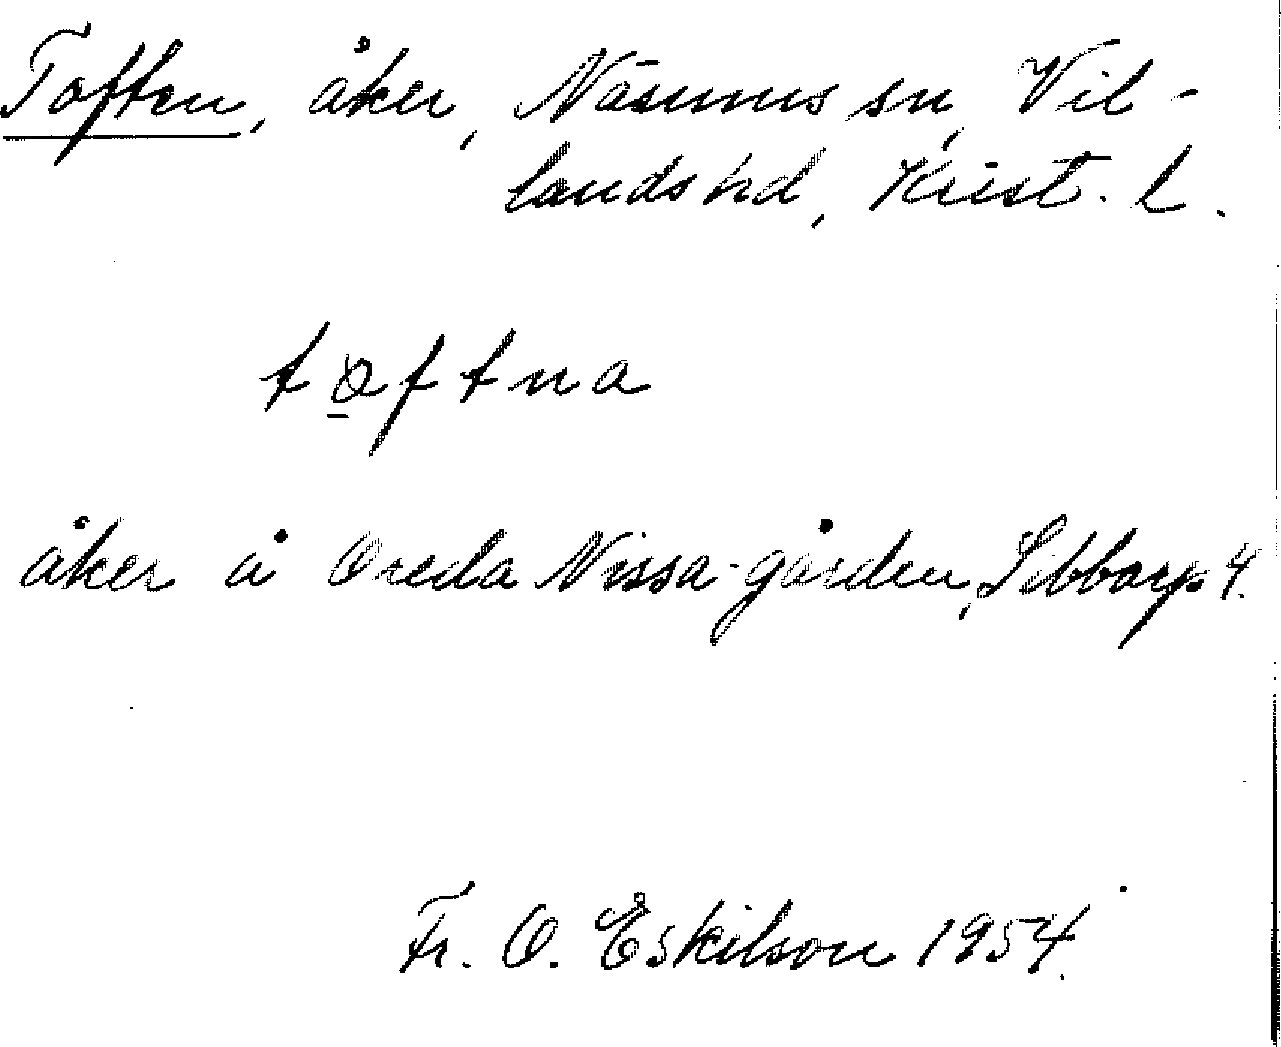 Toften, åker, Näsums sn, Vil-
lands hd, Krist. l.
tåftna
åker å Oreda Nissa-gården, Sibbarp 4.
Fr. O. Eskilson 1954.